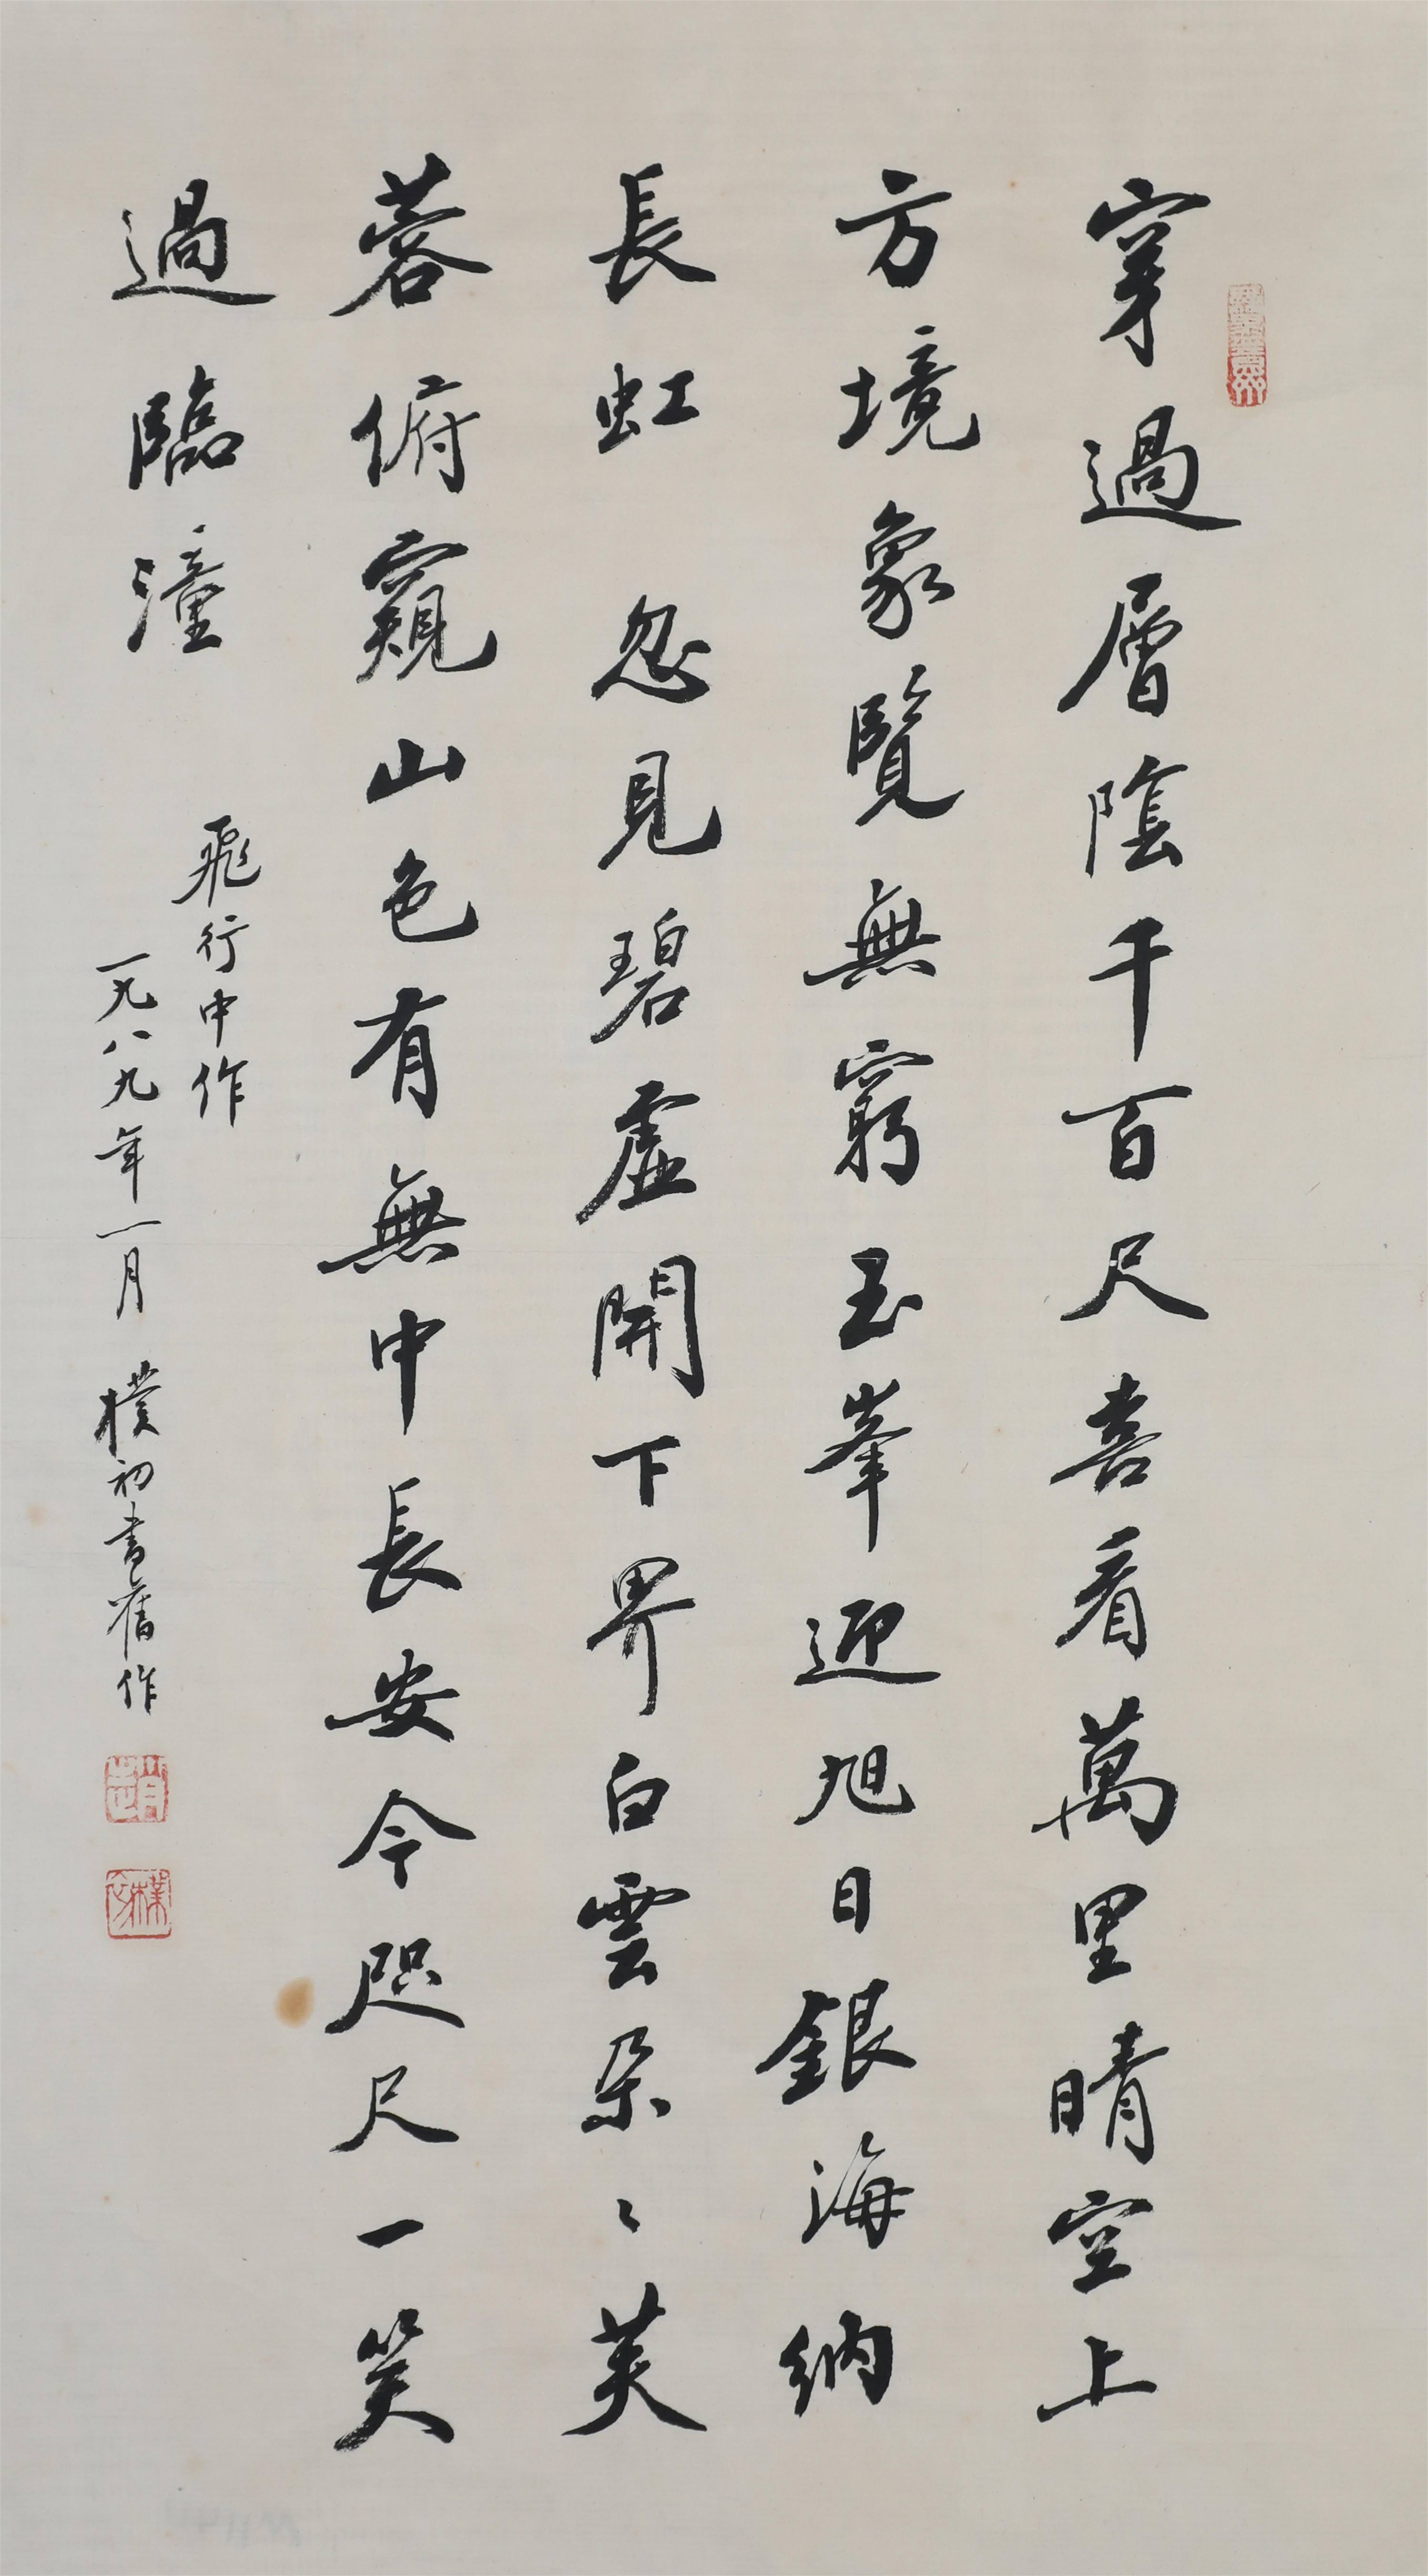 穿過層陰千百尺喜看萬里晴空上
方境象覽無窮玉峯迎旭日銀海納
長虹 忽見碧虛開下界白雲朵〻芙
蓉俯窺山色有無中長安今咫尺一笑
過臨潼
飛行中作
一九八九年一月 樸初書舊作
趙
樸初